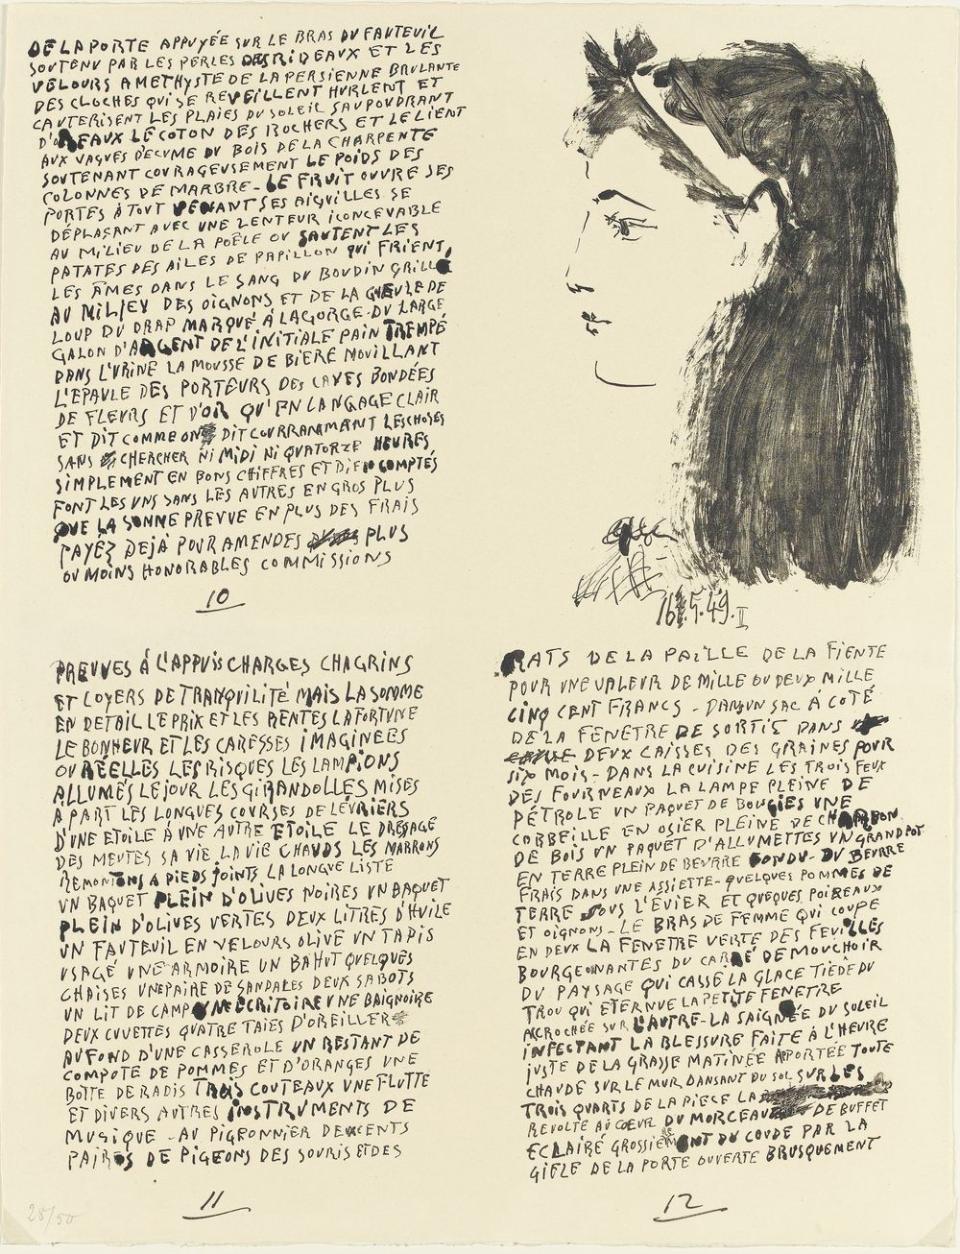 DE LA PORTE APPUYÉE SUR LE BRAS DU FAUTEUIL
SOUTENU PAR LES PERLES DES RIDEAUX ET LES
VELOURS AMETHYSTE DE LA PERSIENNE BRULANTE
DES CLOCHES QUI SE REVEILLENT HURLENT ET
CAUTERISENT LES PLAIES DU SOLEIL SAUPOUDRANT
LE COTON DES ROCHERS ET LE LIENT
AUX VAGUES D'ECUME DU BOIS DE LA CHARPENTE
SOUTENANT COURAGEUSEMENT LE POIDS DES
COLONNES DE MARBRE - LE FRUIT OUVRE SES
PORTES À TOUT VENANT SES AIGUILLES SE
DÉPLAÇANT AVEC UNE LENTEUR ICONCEVABLE
AU MILIEU DE LA POÊLE OU SAUTENT LES
PATATES DES AILES DE PAPILLON QUI FRIENT
LES ÂMES DANS LE SANG DU BOUDIN GRILLÉ
AU MILIEU DES OIGNONS ET DE LA GUEULE DE
LOUP DU DRAP MARQUÉ À LA GORGE - DU LARGE
GALON D'ARGENT DE L'INITIALE PAIN TREMPÉ
DANS L'URINE LA MOUSSE DE BIERE MOUILLANT
L'EPAULE DES PORTEURS DES CAVES BONDÉES
DE FLEURS ET D'OR QU'EN LANGAGE CLAIR
ET DIT COMME ON DIT COURRANAMANT LES CHOSES
SANS CHERCHER NI MIDI NI QUATORZE HEURES
SIMPLEMENT EN BONS CHIFFRES ET DIEN COMPTÉS
FONT LES UNS SANS LES AUTRES EN GROS PLUS
QUE LA SONNE PREUVE EN PLUS DES FRAIS
PAYÉZ DEJÀ POUR AMENDES PLUS
OU MOINS HONORABLES COMMISSIONS
10
16.5.49.II
PREUVES Á L'APPUIS CHARGES CHAGRINS
ET LOYERS DE TRANQUILITÉ MAIS LA SOMME
EN DETAIL LE PRIX ET LES RENTES LA FORTUNE
LE BONHEUR ET LES CARESSES IMAGINEES
OU RÉELLES LES RISQUES LES LAMPIONS
ALLUMÉS LE JOUR LES GIRANDOLLES MISES
A PART LES LONGUES COURSES DE LEVRIERS
D'UNE ETOILE A UNE AUTRE ETOILE LE DRESAGE
DES MEUTES SA VIE LA VIE CHAUDS LES MARRONS
REMONTONS A PIEDS JOINTS LA LONGUE LISTE
UN BAQUET PLEIN D'OLIVES NOIRES UN BAQUET
PLEIN D'OLIVES VERTES DEUX LITRES D'HUILE
UN FAUTEUIL EN VELOURS OLIVE UN TAPIS
USAGÉ UNE ARMOIRE UN BAHUT QUELQUES
CHAISES UNE PAIRE DE SANDALES DEUX SABOTS
UN LIT DE CAMP UNE ECRITOIRE UNE BAIGNOIRE
DEUX CUVETTES QUATRE TAIES D'OREILLER
AU FOND D'UNE CASSEROLE UN RESTANT DE
COMPOTE DE POMMES ET D'ORANGES UNE
BOTTE DE RADIS TROIS COUTEAUX UNE FLUTTE
ET DIVERS AUTRES INSTRUMENTS DE
MUSIQUE - AU PIGEONNIER DEUX CENTS
PAIRES DE PIGEONS DES SOURIS ET DES
11
RATS DE LA PAILLE DE LA FIENTE
POUR UNE VALEUR DE MILLE OU DEUX MILLE
CINQ CENT FRANCS - DANS UN SAC À COTÉ
DE LA FENETRE DE SORTIE DANS
DEUX CAISSES DES GRAINES POUR
SIX MOIS - DANS LA CUISINE LES TROIS FEUX
DES FOURNEAUX LA LAMPE PLEINE DE
PÉTROLE UN PAQUET DE BOUGIES UNE
CORBEILLE EN OSIER PLEINE DE CHARBON
DE BOIS UN PAQUET D'ALLUMETTES UN GRAND POT
EN TERRE PLEIN DE BEURRE FONDU - DU BEURRE
FRAIS DANS UNE ASSIETTE - QUELQUES POMMES DE
TERRE SOUS L'EVIER ET QUEQUES POIREAUX
ET OIGNONS - LE BRAS DE FEMME QUI COUPE
EN DEUX LA FENETRE VERTE DES FEUILLES
BOURGEONANTES DU CARRÉ DE MOUCHOIR
DU PAYSAGE QUI CASSE LA GLACE TIÈDE DU
TROU QUI ETERNUE LA PETITE FENETRE
ACROCHÉE SUR L'AUTRE - LA SAIGNÉE DU SOLEIL
INFECTANT LA BLESSURE FAITE À L'HEURE
JUSTE DE LA GRASSE MATINÉE APORTÉE TOUTE
CHAUDE SUR LE MUR DANSANT DU SOL SUR LES
TROIS QUARTS DE LA PIECE LA
REVOLTE AU COEUR DU MORCEAU DE BUFFET
ECLAIRÉ GROSSIEREMENT DU COUDE PAR LA
GIFLE DE LA PORTE OUVERTE BRUSQUEMENT
12
28/50